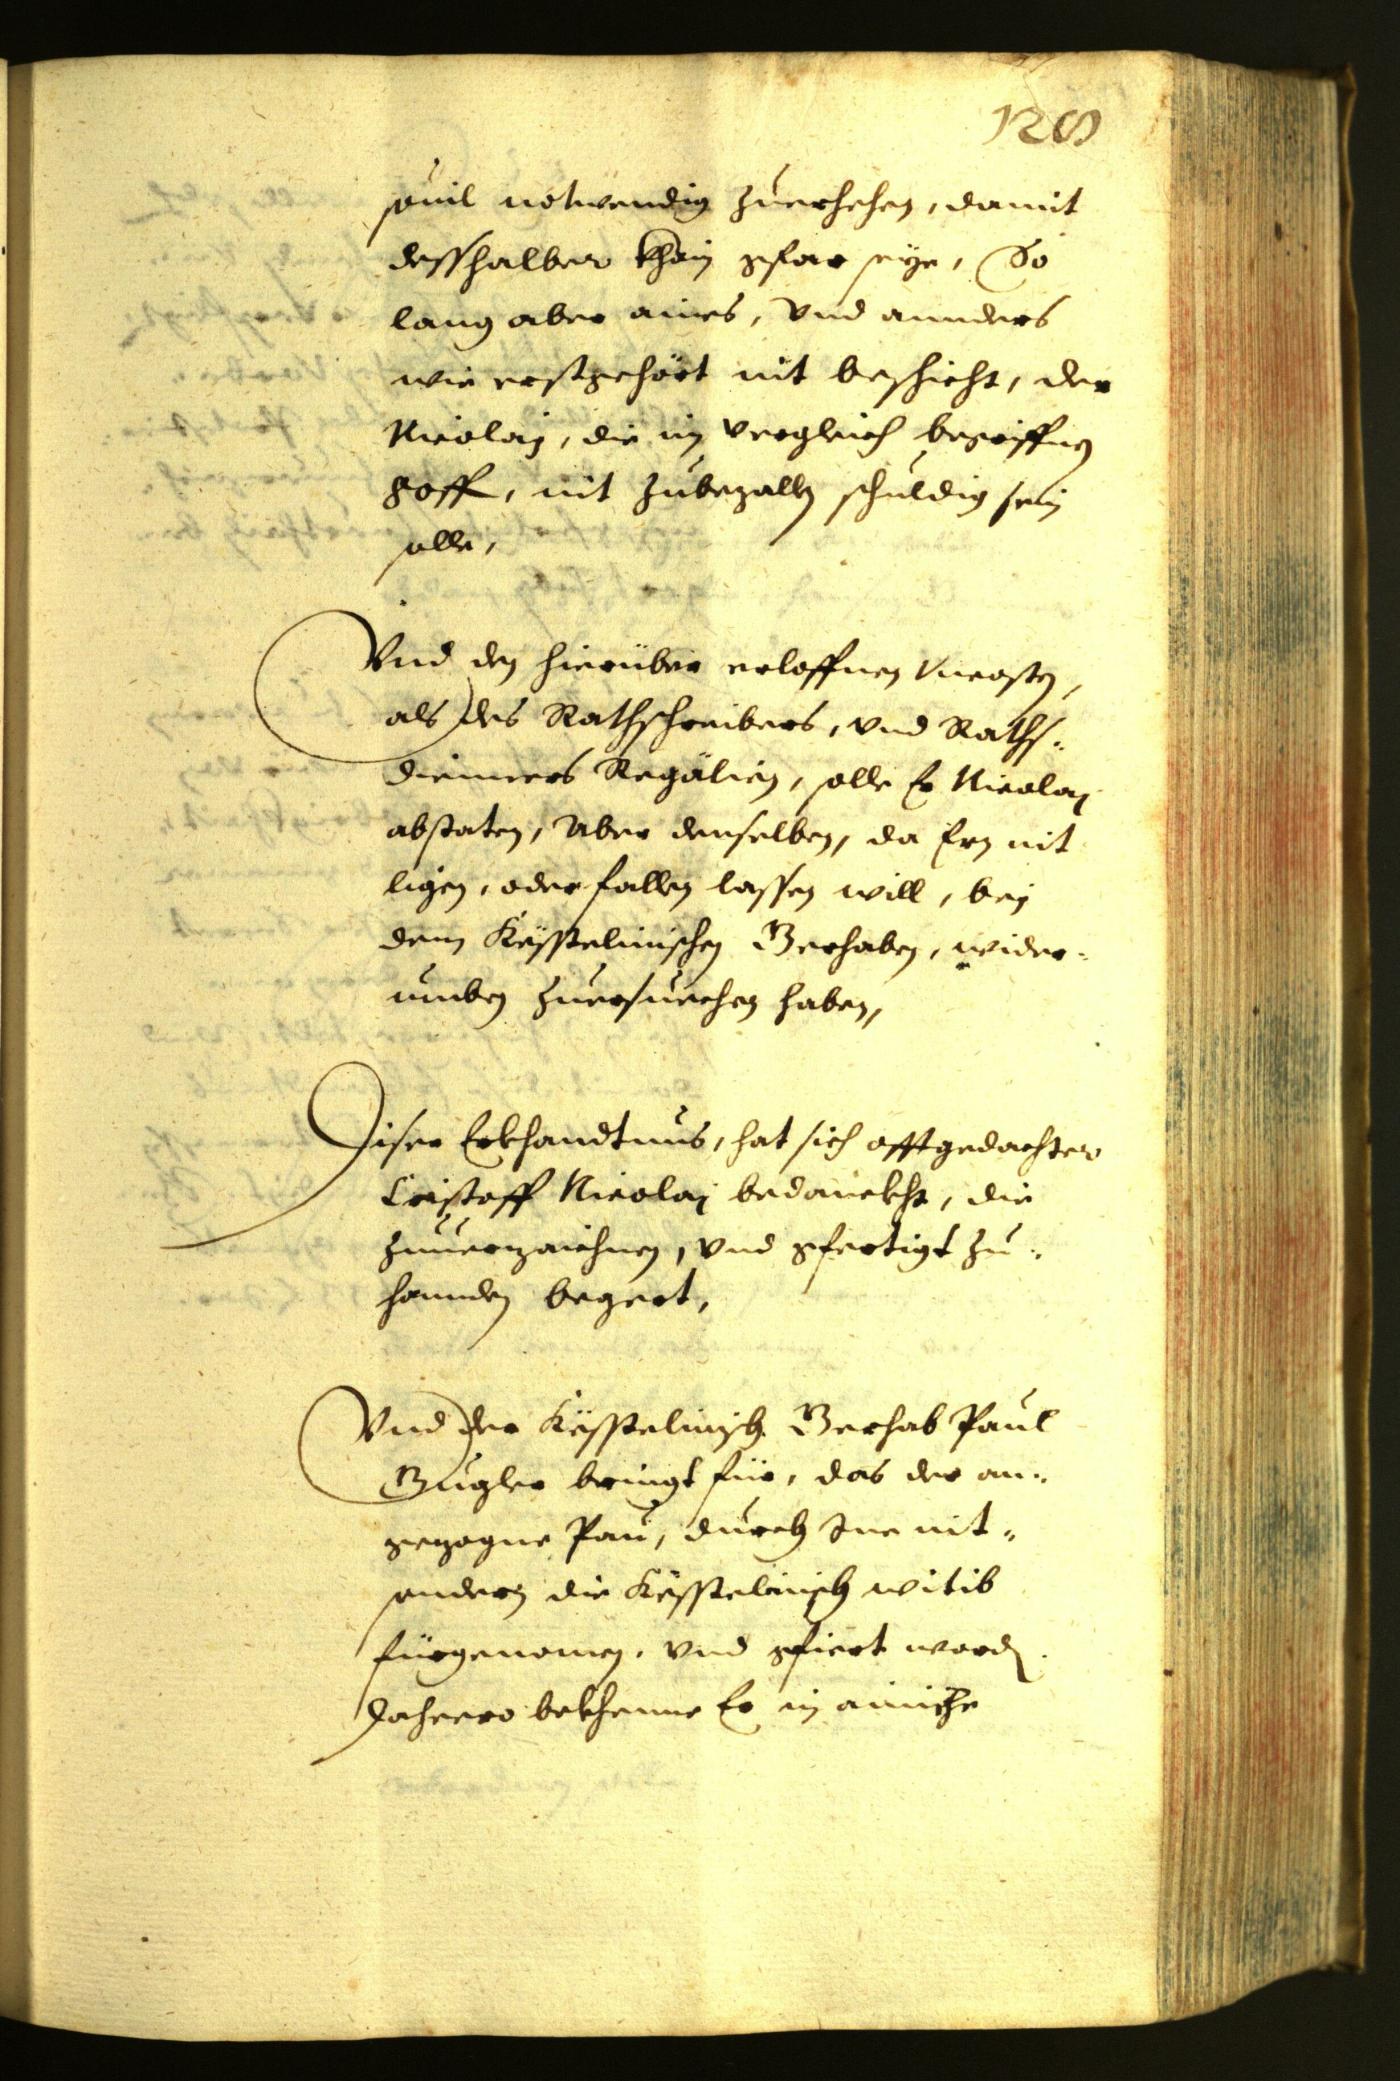 128
souil notwendig zuersehen, damit
desshalben khain gfar seye, So
lang aber aines, vnd annders
wie erstgehört nit beschicht, der
Nicolaj, die im verglich begriffnen
nit zubezallen schuldig sein
solle,
Vnd den hierüber erloffnen Vncossten,
als des Rathschreibers, vnd Raths-
dienners Regalien, solle Er Nicolaj
abstaten, Aber denselben, da Ern nit
ligen, oder fallen lassen will, bey
dem Kësstelinischen Gerhaben, wider-
umben zuersuechen haben,
Diser Erkhandtnus, hat sich offtgedachter
Cristoff Nicolaj bedanckht, die
zuuerzaichnen, vnd gfertigt zu-
hannden begert,
Vnd der Kësstelinisch Gerhab Paul
Gugler bringt für, das der an-
gezogne Pau, durch Ine nit-
sonders die Kësstelinisch witib
fürgenomen, vnd gfiert worden.
Dahero bekhenne Er in ainiche